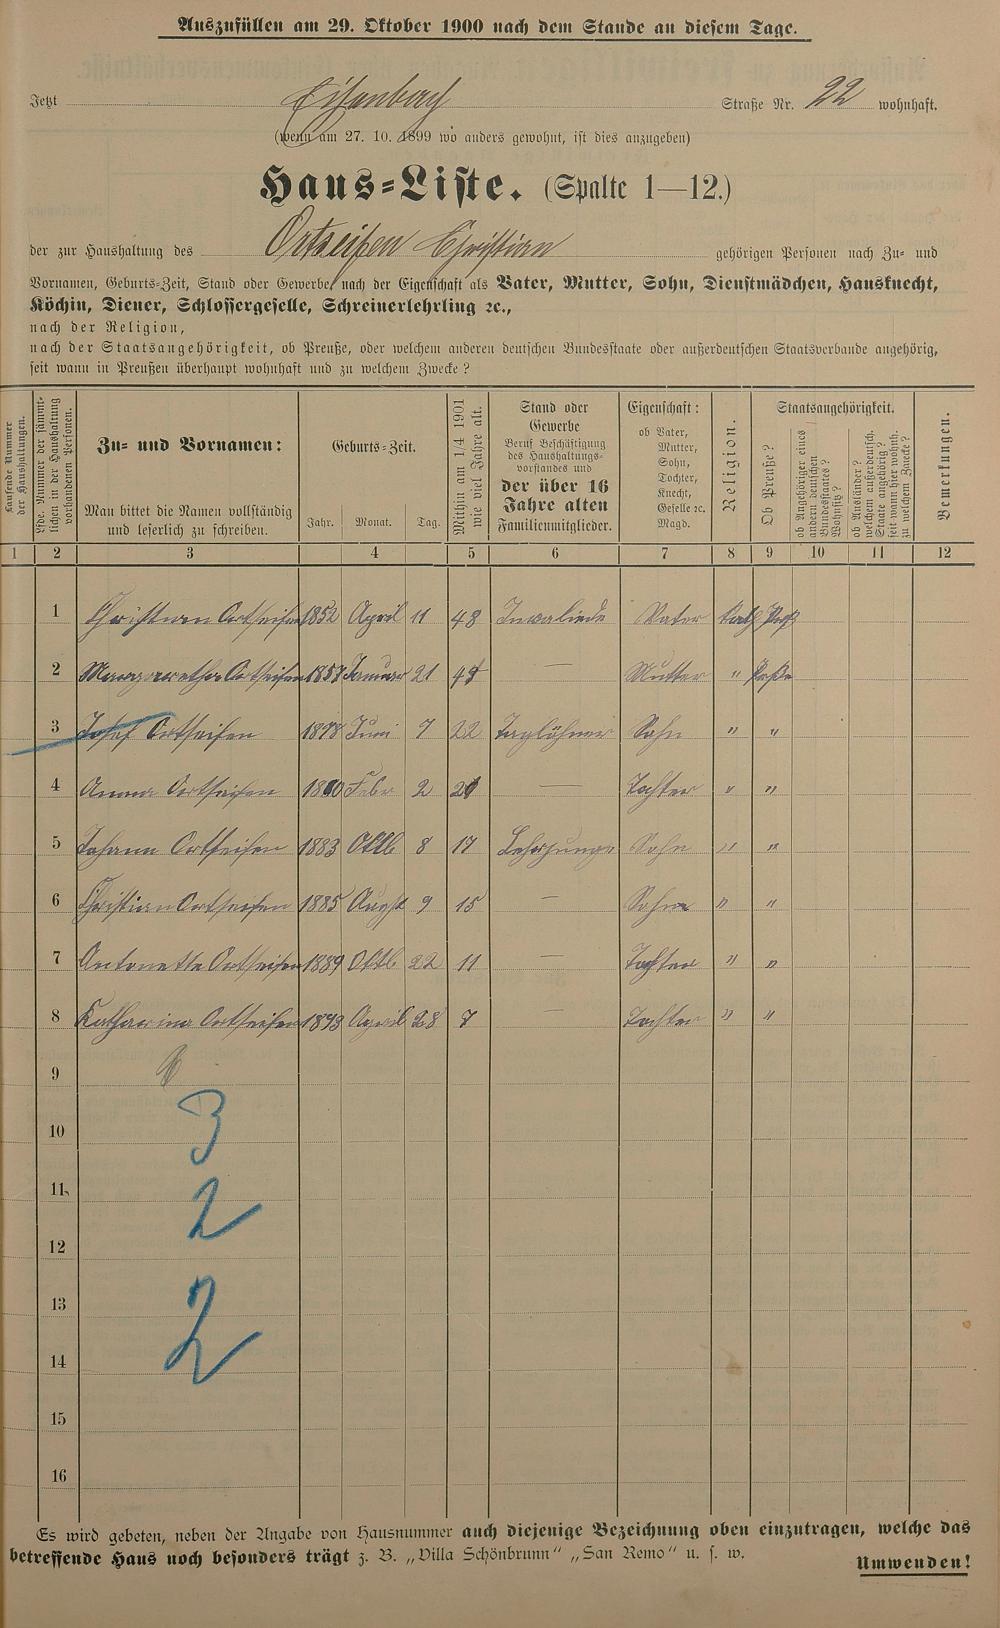 Auszufüllen am 29. Oktober 1900 nach dem Stande an diesem Tage.
Jetzt Eisenbach Straße Nr. 22 wohnhaft.
(wenn am 27. 10. 1899 wo anders gewohnt, ist dies anzugeben)
Haus-Liste. (Spalte 1—12.)
der zur Haushaltung des Ortseifen Christian gehörigen Personen nach Zu- und
Vornamen, Geburts-Zeit, Stand oder Gewerbe, nach der Eigenschaft als Vater, Mutter, Sohn, Dienstmädchen, Hausknecht,
Köchin, Diener, Schlossergeselle, Schreinerlehrling ꝛc.,
nach der Religion,
nach der Staatsangehörigkeit, ob Preuße, oder welchem anderen deutschen Bundesstaate oder außerdeutschen Staatsverbande angehörig,
seit wann in Preußen überhaupt wohnhaft und zu welchem Zwecke?
Laufende Nummer
der Haushaltungen.
Lfde. Nummer der sämmt-
lichen in der Haushaltung
vorhandenen Personen.
Zu- und Vornamen:
Man bittet die Namen vollständig
und leserlich zu schreiben.
Geburts-Zeit.
Jahr. Monat. Tag.
Mithin am 1/4 1901
wie viel Jahre alt.
Stand oder
Gewerbe
Beruf Beschäftigung
des Haushaltungs-
vorstandes und
der über 16
Jahre alten
Familienmitglieder.
Eigenschaft:
ob Vater,
Mutter,
Sohn,
Tochter,
Knecht,
Geselle ꝛc.
Magd.
Religion.
Staatsangehörigkeit.
Ob Preuße?
ob Angehöriger eines
andern deutschen
Bundesstaates?
Wohnsitz?
ob Ausländer?
welchem außerdeutsch.
Staate angehörig?
seit wann hier wohnh.
zu welchem Zwecke?
Bemerkungen.
1 2 3 4 5 6 7 8 9 10 11 12
1 Christian Ortseifen 1852 April 11 48 Invaliede Vater Kath Prß
2 Margaretha Ortseifen 1857 Januar 21 — Mutter " Prße
3 Josef Ortseifen 1878 Juni 7 22 Taglöhner Sohn " "
4 Anna Ortseifen 1880 Febr 2 — Tochter " "
5 Johann Ortseifen 1883 Oktb 8 17 Lehrjunge Sohn " "
6 Christian Ortseifen 1885 Augst 9 15 — Sohn " "
7 Antonette Ortseifen 1889 Oktb 22 11 — Tochter " "
8 Katharina Ortseifen 1893 April 28 7 — Tochter " "
9
10 3
11
12 2
13
14 2
15
16
Es wird gebeten, neben der Angabe von Hausnummer auch diejenige Bezeichnung oben einzutragen, welche das
betreffende Haus noch besonders trägt z. B. „Villa Schönbrunn" „San Remo" u. s. w.
Umwenden!